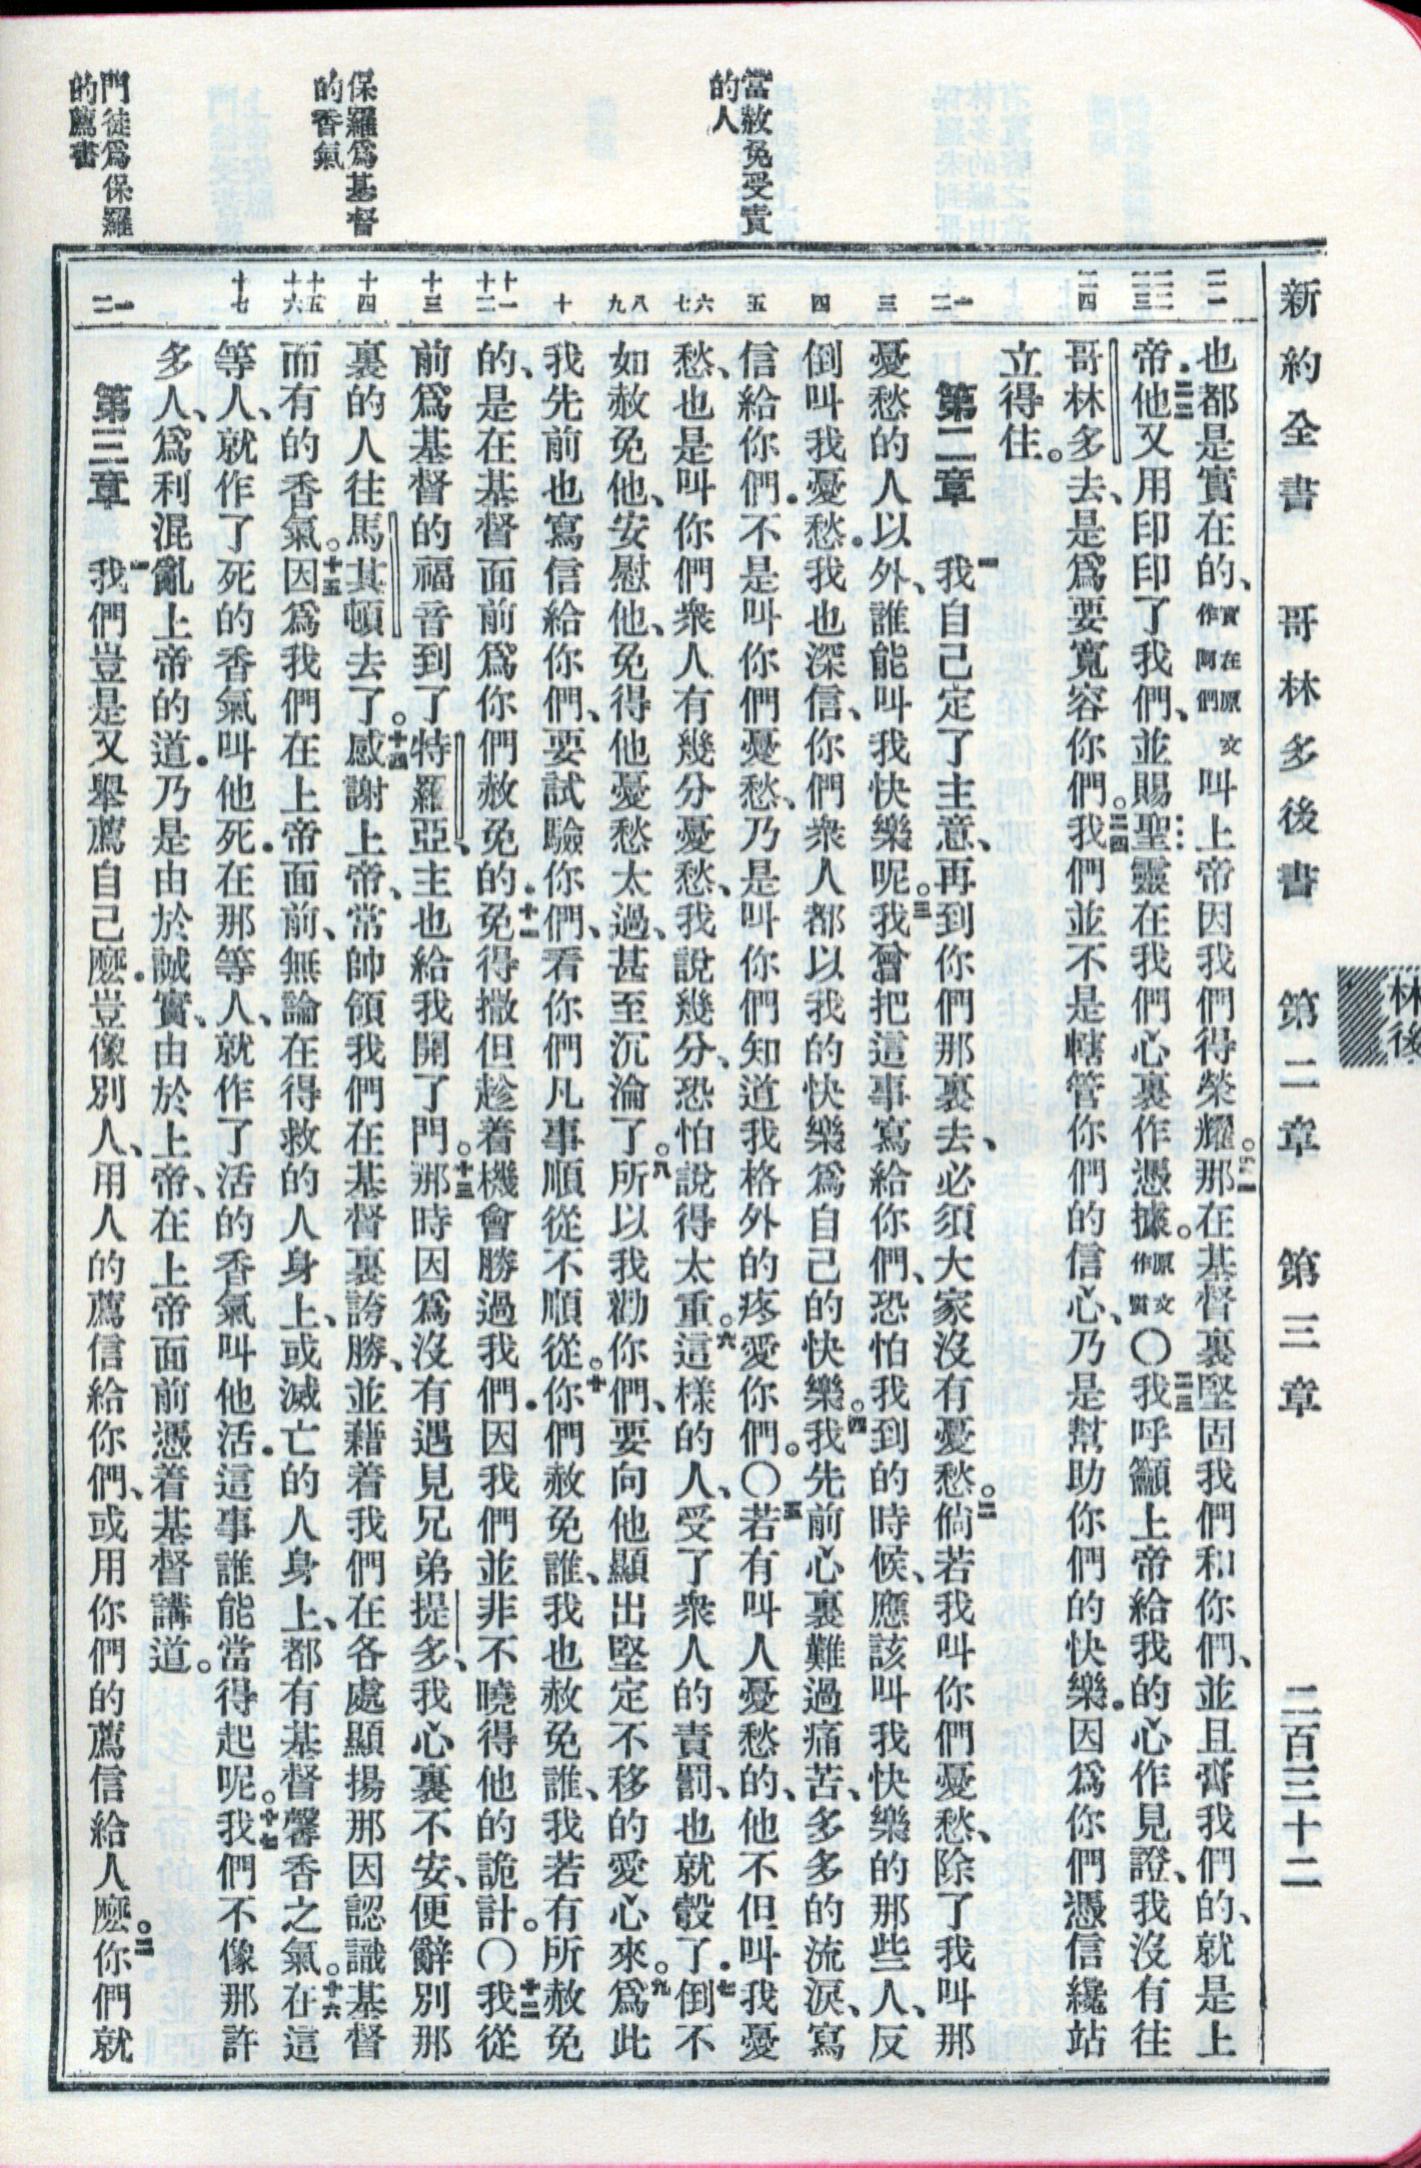 新約全書　哥林多後書　第二章　第三章　二百三十二
林後
也都是實在的、實在原文作阿們叫上帝因我們得榮耀。二一那在基督裏堅固我們和你們、並且膏我們的、就是上
帝．二二他又用印印了我們、並賜聖靈在我們心裏作憑據。原文作質〇二三我呼籲上帝給我的心作見證、我沒有往
哥林多去、是爲要寬容你們。二四我們並不是轄管你們的信心、乃是幫助你們的快樂．因爲你們憑信纔站
立得住。
第二章　一我自己定了主意、再到你們那裏去、必須大家沒有憂愁。二倘若我叫你們憂愁、除了我叫那
憂愁的人以外、誰能叫我快樂呢。三我曾把這事寫給你們、恐怕我到的時候、應該叫我快樂的那些人、反
倒叫我憂愁．我也深信、你們衆人都以我的快樂爲自己的快樂。四我先前心裏難過痛苦、多多的流淚、寫
信給你們．不是叫你們憂愁、乃是叫你們知道我格外的疼愛你們。〇五若有叫人憂愁的、他不但叫我憂
愁、也是叫你們衆人有幾分憂愁、我說幾分、恐怕說得太重。六這樣的人、受了衆人的責罰、也就彀了．七倒不
如赦免他、安慰他、免得他憂愁太過、甚至沉淪了。八所以我勸你們、要向他顯出堅定不移的愛心來。九爲此
我先前也寫信給你們、要試驗你們、看你們凡事順從不順從。十你們赦免誰、我也赦免誰、我若有所赦免
的、是在基督面前爲你們赦免的．十一免得撒但趁着機會勝過我們．因我們並非不曉得他的詭計。〇十二我從
前爲基督的福音到了特羅亞、主也給我開了門。十三那時因爲沒有遇見兄弟提多、我心裏不安、便辭別那
裏的人往馬其頓去了。十四感謝上帝、常帥領我們在基督裏誇勝、並藉着我們在各處顯揚那因認識基督
而有的香氣。十五因爲我們在上帝面前、無論在得救的人身上、或滅亡的人身上、都有基督馨香之氣。十六在這
等人、就作了死的香氣叫他死．在那等人、就作了活的香氣叫他活．這事誰能當得起呢。十七我們不像那許
多人、爲利混亂上帝的道．乃是由於誠實、由於上帝、在上帝面前憑着基督講道。
第三章　一我們豈是又舉薦自己麽．豈像別人、用人的薦信給你們、或用你們的薦信給人麽。二你們就
當赦免受責
的人
保羅爲基督
的香氣
門徒爲保羅
的薦書
二一
二二
二三
二四
一
二
三
四
五
六
七
八
九
十
十一
十二
十三
十四
十五
十六
十七
一
二